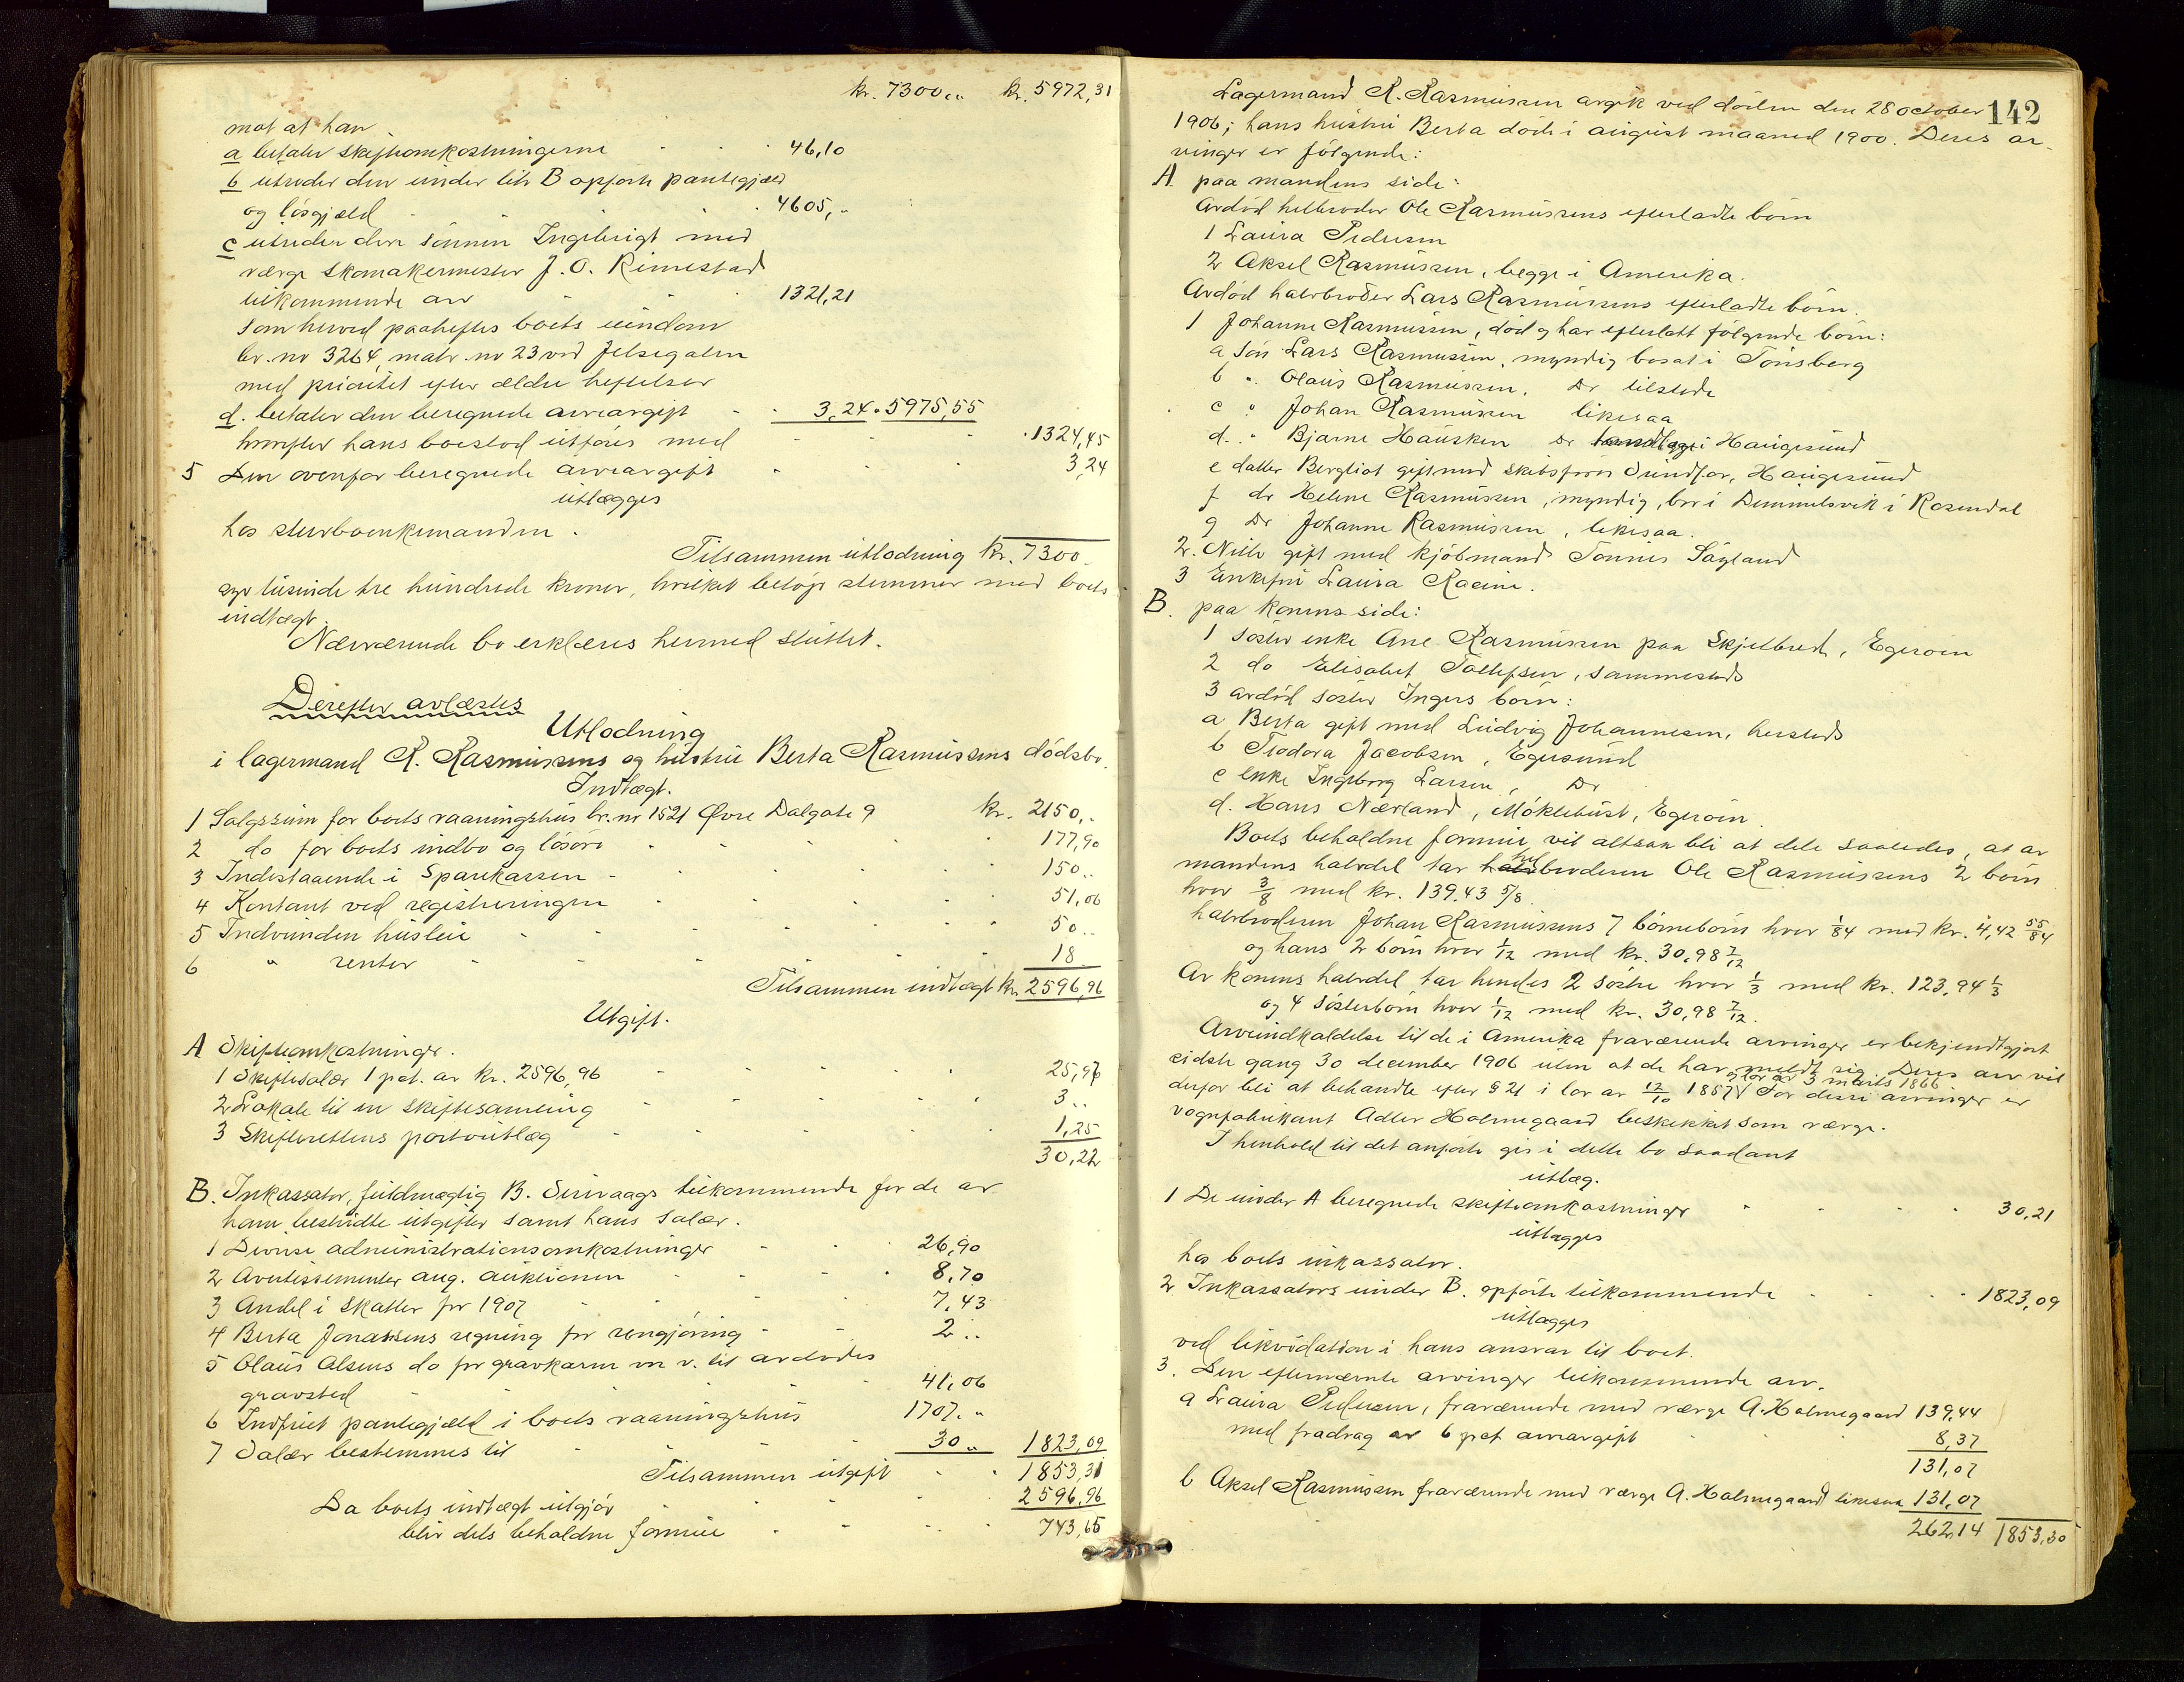 kr. 7300,, kr. 5972,31
mot at han
a betaler skifteomkostningerne 46,10
b utreder den under litr B opførte pantegjæld
og løsgjæld 4605,-
c utreder den sønnen Ingebrigt med
værge skomakermester J. O. Rimestad
tilkommende arv 1321,21
som herved paaheftes boets eiendom
br. nr 3264, matr. nr 23 ved Jelsegaten
med prioritet efter ældre heftelser
d. betaler den beregnede arveavgift 3,24 5975,55
hvorefter hans boeslod utføres med 1324,45
5 Den ovenfor beregnede arveavgift 3,24
utlægges
hos sterboenkemanden.
Tilsammen utlodning kr. 7300
syv tusinde tre hundrede kroner, hvilket beløp stemmer med boets
indtægt.
Nærværende bo erklæres hermed sluttet.
Derefter avlæstes
Utlodning
i lagermand R. Rasmussens og hustru Berta Rasmussens dødsbo.
Indtægt.
1 Salgssum for boets vaaningshus br. nr 1521 Øvre Dalgate 9 kr. 2150,-
2 do for boets indbo og løsøre 177,90
3 Indestaaende i Sparekassen 150..
4 Kontant ved registreringen 51,06
5 Indvunden husleie 50..
6 " renter 18
Tilsammen indtægt kr. 2596,96
Utgift.
A Skifteomkostninger.
1 Skiftesalær 1 pct. av kr. 2596,96 25,97
2 Lokale til en skiftesamling 3..
3 Skifterettens portoutlæg 1,25
30,22
B. Inkassator, fuldmægtig B. Sirevaags tilkommende for de av
ham bestridte utgifter samt hans salær.
1 Diverse administrationsomkostninger 26,90
2 Avertissementer ang. auktionen 8,70
3 Andel i skatter for 1907 7,43
4 Berta Jonassens regning for rengjøring 2..
5 Olaus Olsens do for gravkarm m v. til avdødes
gravsted 41,06
6 Indfriet pantegjæld i boets vaaningshus 1707.-
7 Salær bestemmes til 30,, 1823,09
Tilsammen utgift 1853,31
Da boets indtægt utgjør 2596,96
blir dets beholdne formue 743,65
142
Lagermand R. Rasmussen avgik ved døden den 28 october
1906; hans hustru Berta døde i august maaned 1900. Deres ar-
vinger er følgende:
A paa mandens side:
Avdød helbroder Ole Rasmussens efterladte børn
1 Laura Pedersen
2 Aksel Rasmussen, begge i Amerika.
Avdød halvbroder Lars Rasmussens efterladte børn.
1 Johanne Rasmussen, død og har efterlatt følgende børn:
a søn Lars Rasmussen, myndig bosat i Tønsberg
b " Olaus Rasmussen. Do tilstede
c " Johan Rasmussen likesaa
d. " Bjarne Hausken Do i Haugesund
e datter Bergliot gift med skibsfører Sundfør, Haugesund
f do Helene Rasmussen, myndig, bor i Dimmelsvik i Rosendal
g Do Johanne Rasmussen, likesaa.
2. Nille gift med kjøbmand Tønnes Søyland
3 Enkefru Laura Racine.
B. paa konens side:
1 søster enke Ane Rasmussen paa Skjelbred, Egerøen
2 do Elisabet Tollefsen, sammesteds
3 avdød søster Ingers børn:
a Berta gift med Ludvig Johannesen, hersteds
b Teodora Jacobsen, Egersund
c enke Ingeborg Larsen, Do
d. Hans Nærland, Møklebust, Egerøen
Boets beholdne formue vil altsaa bli at dele saaledes, at av
mandens halvdel tar helbroderen Ole Rasmussens 2 børn
hver 3/8 med kr. 139,43 5/8.
halvbroderen Johan Rasmussens 7 børnebørn hver 1/84 med kr. 4,42 55/84
og hans 2 børn hver 1/12 med kr. 30,98 7/12
Av konens halvdel tar hendes 2 søstre hver 1/3 med kr. 123,94 1/3
og 4 søsterbørn hver 1/12 med kr. 30,98 7/12.
Arveindkaldelse til de i Amerika fraværende arvinger er bekjendtgjort
sidste gang 30 december 1906 uten at de har meldt sig. Deres arv vil
derfor bli at behandle efter § 21 i lov av 12/10 1857 og lov av 3 marts 1866. For disse arvinger er
vognfabrikant Adler Holmegaard beskikket som værge.
I henhold til det anførte gis i dette bo saadant
utlæg.
1 De under A beregnede skifteomkostninger 30,21
utlægges
hos boets inkassator.
2 Inkassators under B. opførte tilkommende 1823,09
utlægges
ved likvidation i hans ansvar til boet.
3. Den efternævnte arvinger tilkommende arv.
a Laura Pedersen, fraværende med værge A. Holmegaard 139,44
med fradrag av 6 pct arveavgift 8,37
131,07
b Aksel Rasmussen fraværende med værge A. Holmegaard likesaa 131,07
262,14 1853,30